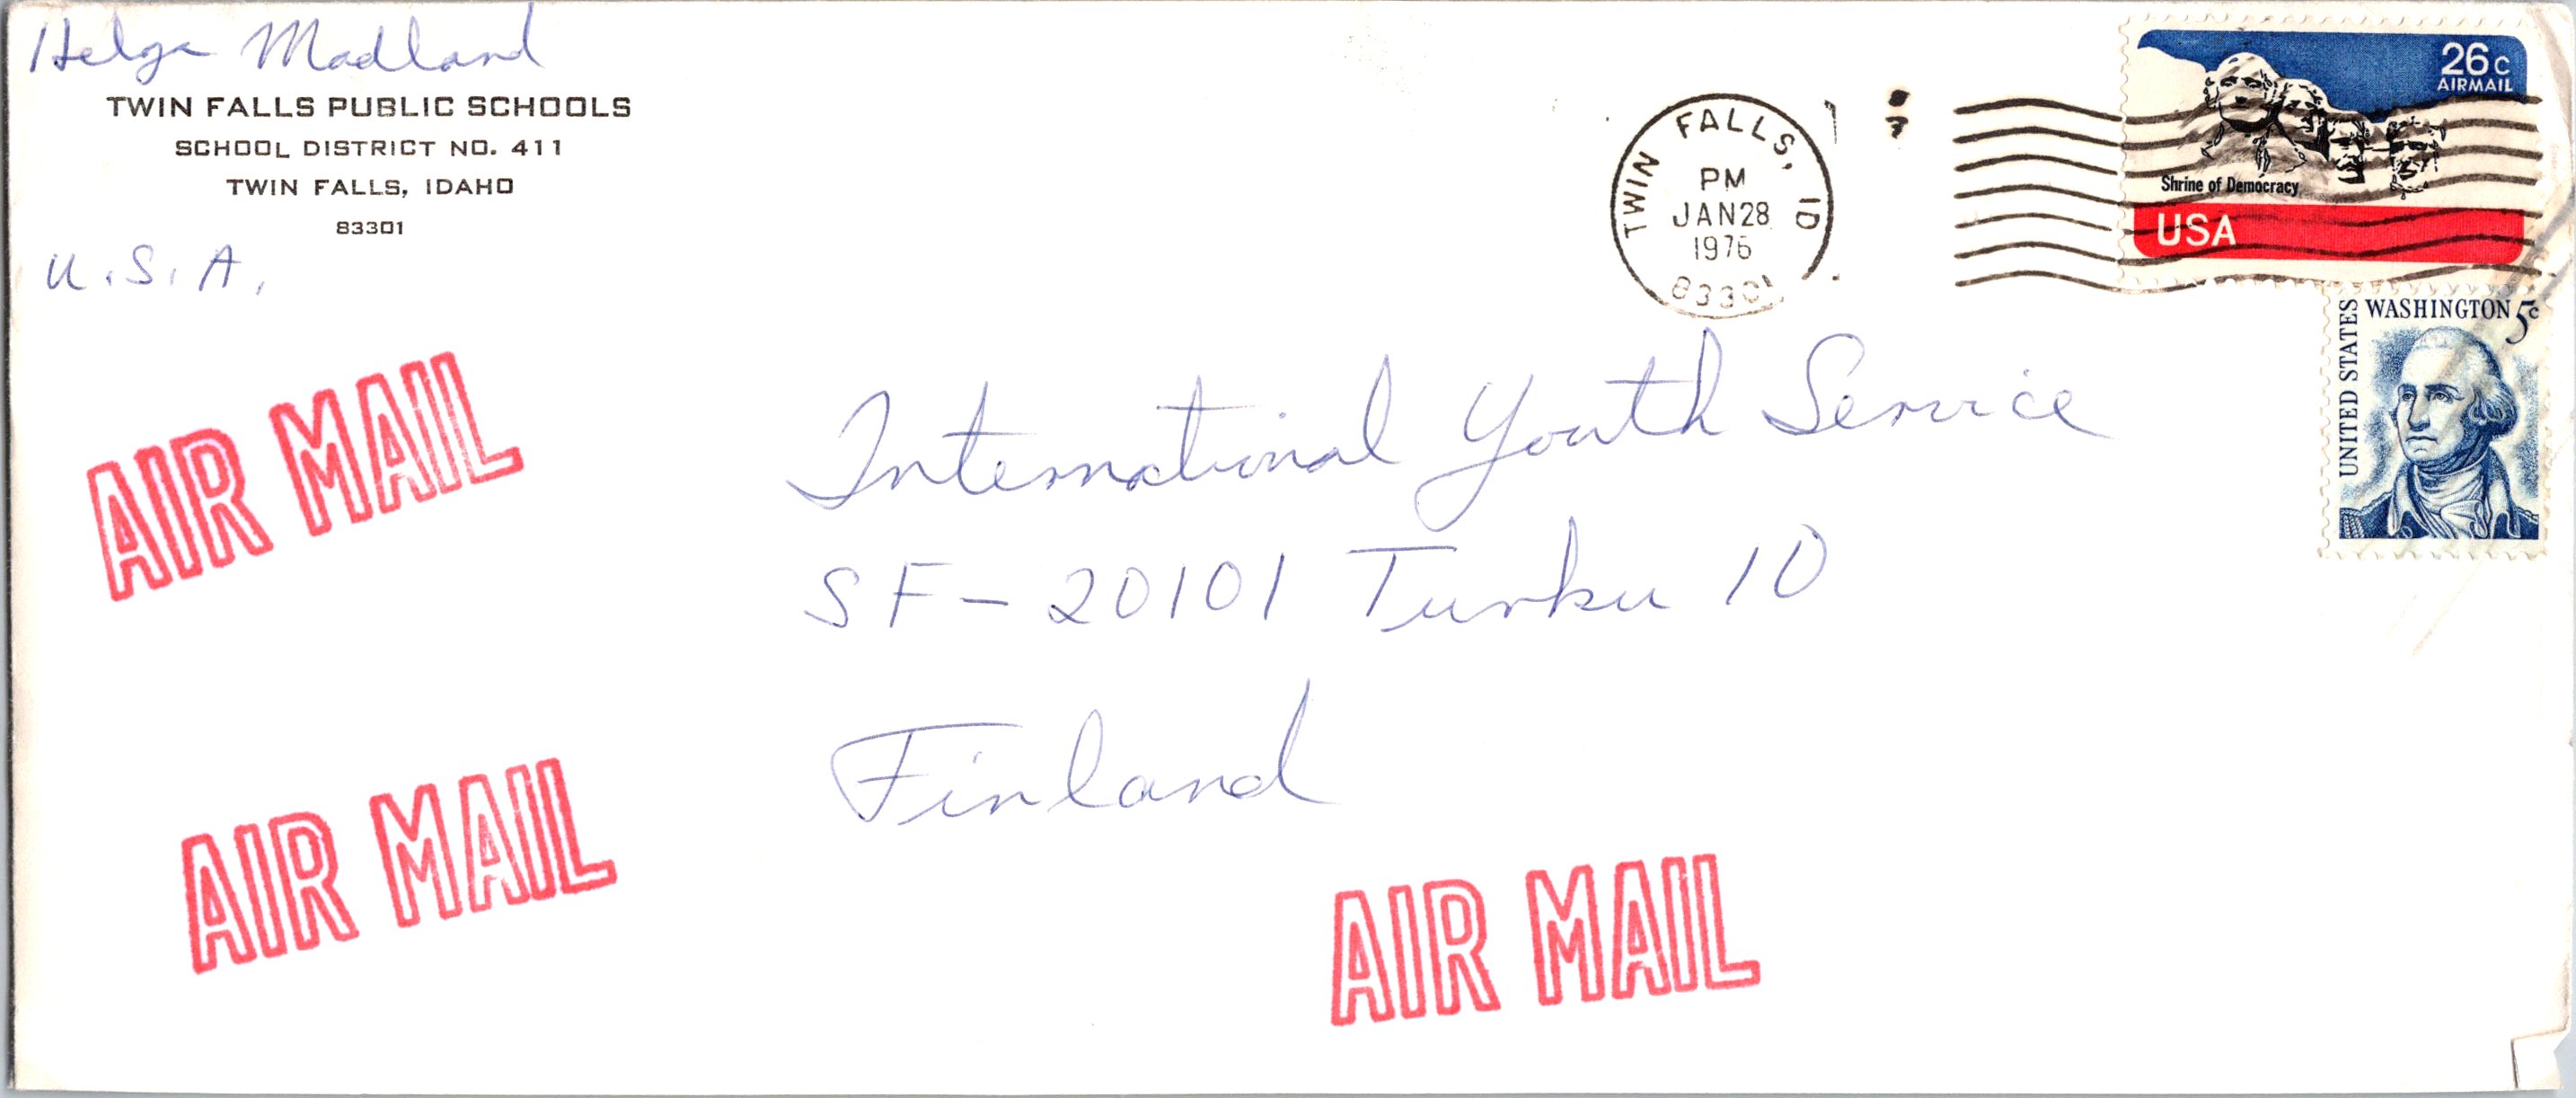 Helga Madland
TWIN FALLS PUBLIC SCHOOLS
SCHOOL DISTRICT NO. 411
TWIN FALLS, IDAHO
83301
U.S.A.
TWIN FALLS, ID
PM
JAN 28
1976
83301
26c
AIRMAIL
Shrine of Democracy
USA
UNITED STATES
WASHINGTON 5c
AIR MAIL
International Youth Service
SF-20101 Turku 10
Finland
AIR MAIL
AIR MAIL